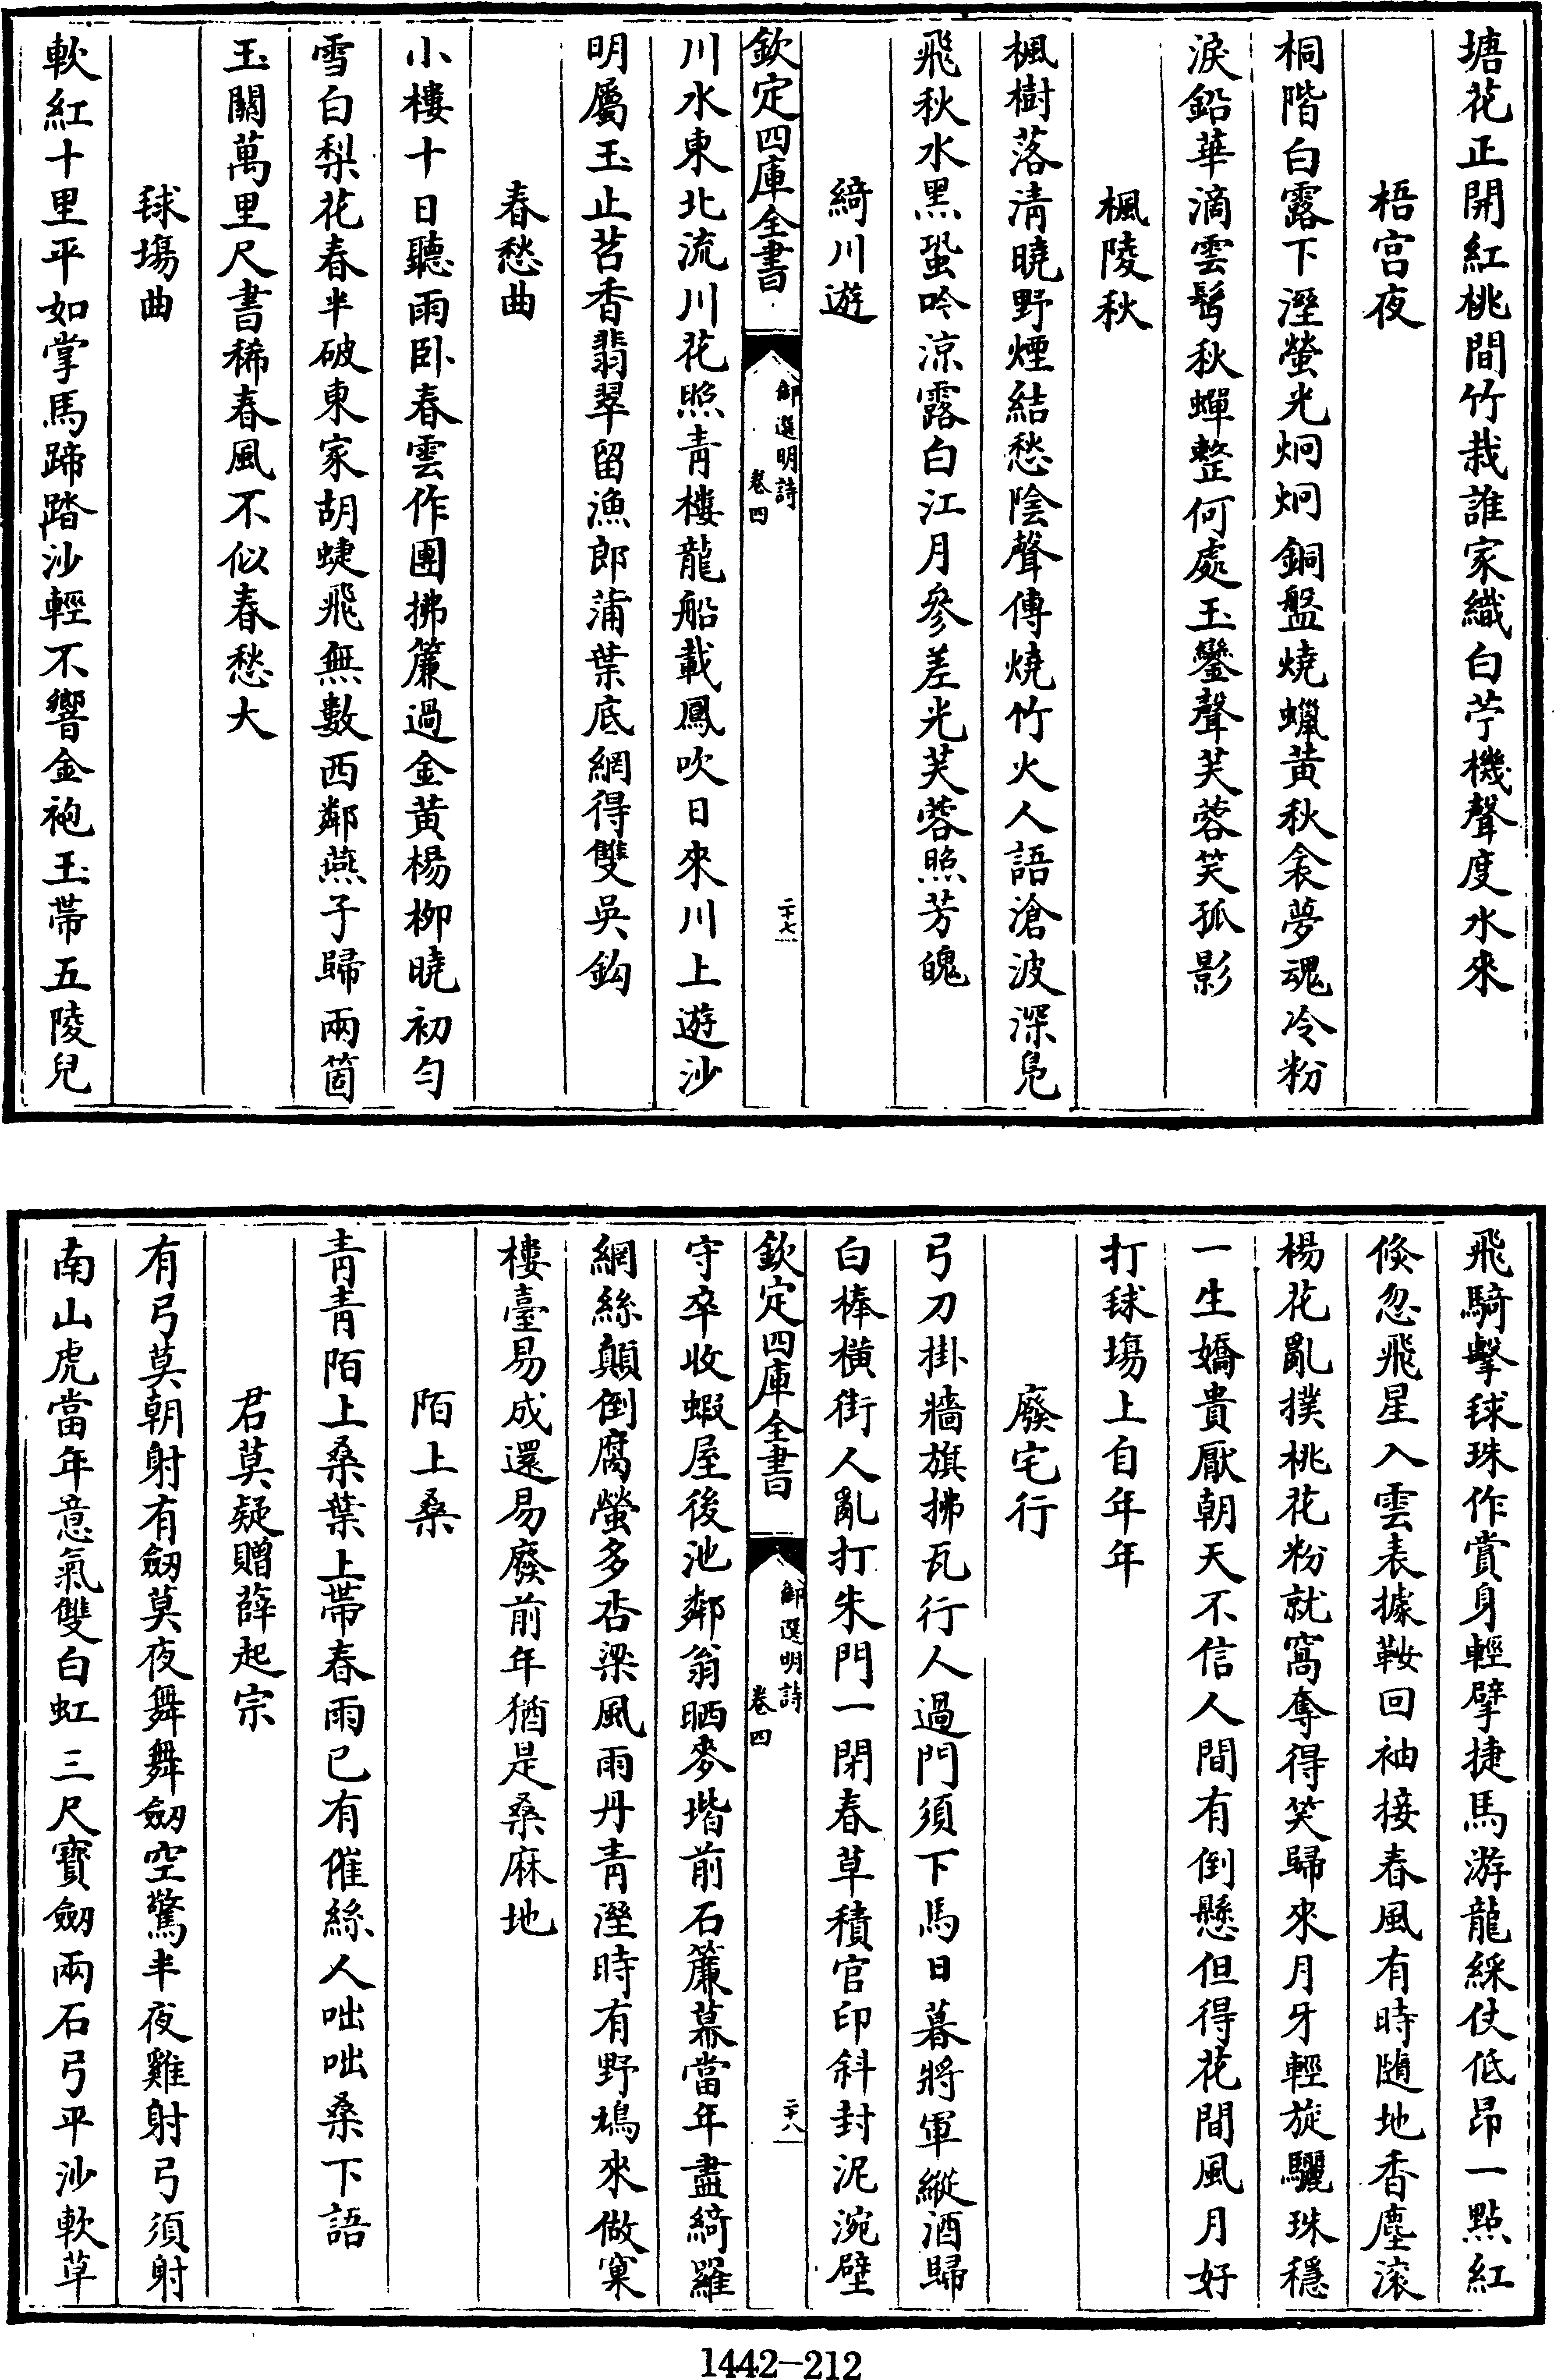 塘花正開紅桃間竹栽誰家織白苧機聲度水來
梧宮夜
桐階白露下溼螢光炯炯銅盤燒蠟黃秋衾夢魂冷粉
淚鉛華滴雲髩秋蟬整何處玉鑾聲芙蓉笑孤影
楓陵秋
楓樹落清曉野煙結愁陰聲傳燒竹火人語滄波深鳧
飛秋水黑蛩吟涼露白江月參差光芙蓉照芳魄
綺川遊
欽定四庫全書
御選明詩
卷四
二十七
川水東北流川花照青樓龍船載鳳吹日來川上遊沙
明屬玉止苕香翡翠留漁郎蒲葉底網得雙吳鈎
春愁曲
小樓十日聽雨卧春雲作團拂簾過金黃楊柳曉初勻
雪白梨花春半破東家胡蜨飛無數西鄰燕子歸兩箇
玉關萬里尺書稀春風不似春愁大
毬塲曲
軟紅十里平如掌馬蹄踏沙輕不響金袍玉帶五陵兒
飛騎擊毬珠作賞身輕擘捷馬游龍綵仗低昂一點紅
倐忽飛星入雲表據鞍回袖接春風有時隨地香塵滚
楊花亂撲桃花粉就窩奪得笑歸來月牙輕旋驪珠穩
一生嬌貴厭朝天不信人間有倒懸但得花間風月好
打毬塲上自年年
廢宅行
弓刀掛牆旗拂瓦行人過門須下馬日暮將軍縱酒歸
白棒橫街人亂打朱門一閉春草積官印斜封泥涴壁
欽定四庫全書
御選明詩
卷四
二十八
守卒收蝦屋後池鄰翁晒麥堦前石簾幕當年盡綺羅
網絲顛倒腐螢多杏梁風雨丹青溼時有野鳩來做窠
樓臺易成還易廢前年猶是桑麻地
陌上桑
青青陌上桑葉上帶春雨已有催絲人咄咄桑下語
君莫疑贈薛起宗
有弓莫朝射有劒莫夜舞舞劒空驚半夜雞射弓須射
南山虎當年意氣雙白虹三尺寶劒兩石弓平沙軟草
1442-212